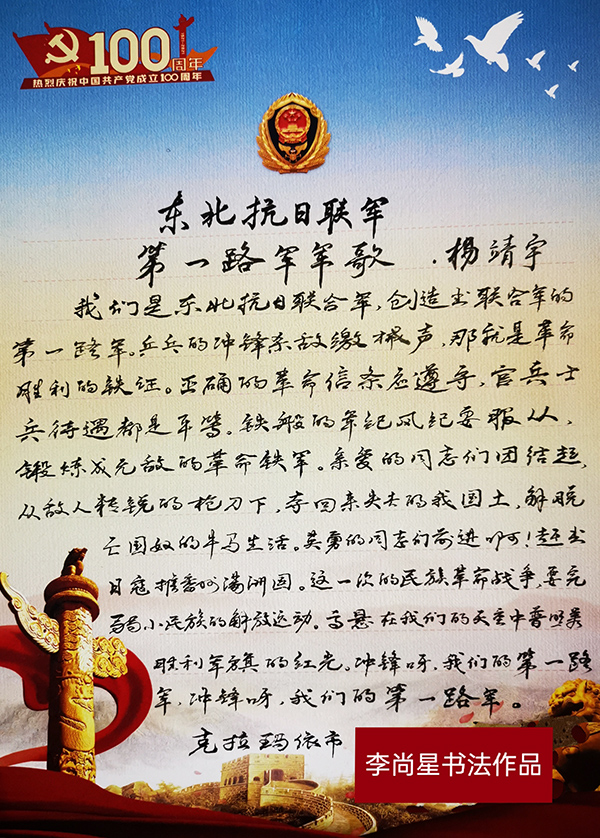 100周年
热烈庆祝中国共产党成立100周年
东北抗日联军
第一路军军歌 · 杨靖宇
我们是东北抗日联合军，创造出联合军的
第一路军。乒乓的冲锋杀敌缴械声，那就是革命
胜利的铁证。正确的革命信条应遵守，官兵士
兵待遇都是平等。铁般的军纪风纪要服从，
锻炼成无敌的革命铁军。亲爱的同志们团结起，
从敌人精锐的枪刀下，夺回来失去的我国土，解脱
亡国奴的牛马生活。英勇的同志们前进呀！赶出
日寇推翻满洲国。这一次的民族革命战争，要完
弱小民族的解放运动。高悬在我们的天空中普照着
胜利军旗的红光。冲锋呀，我们的第一路
军，冲锋呀，我们的第一路军。
克拉玛依市
李尚星书法作品